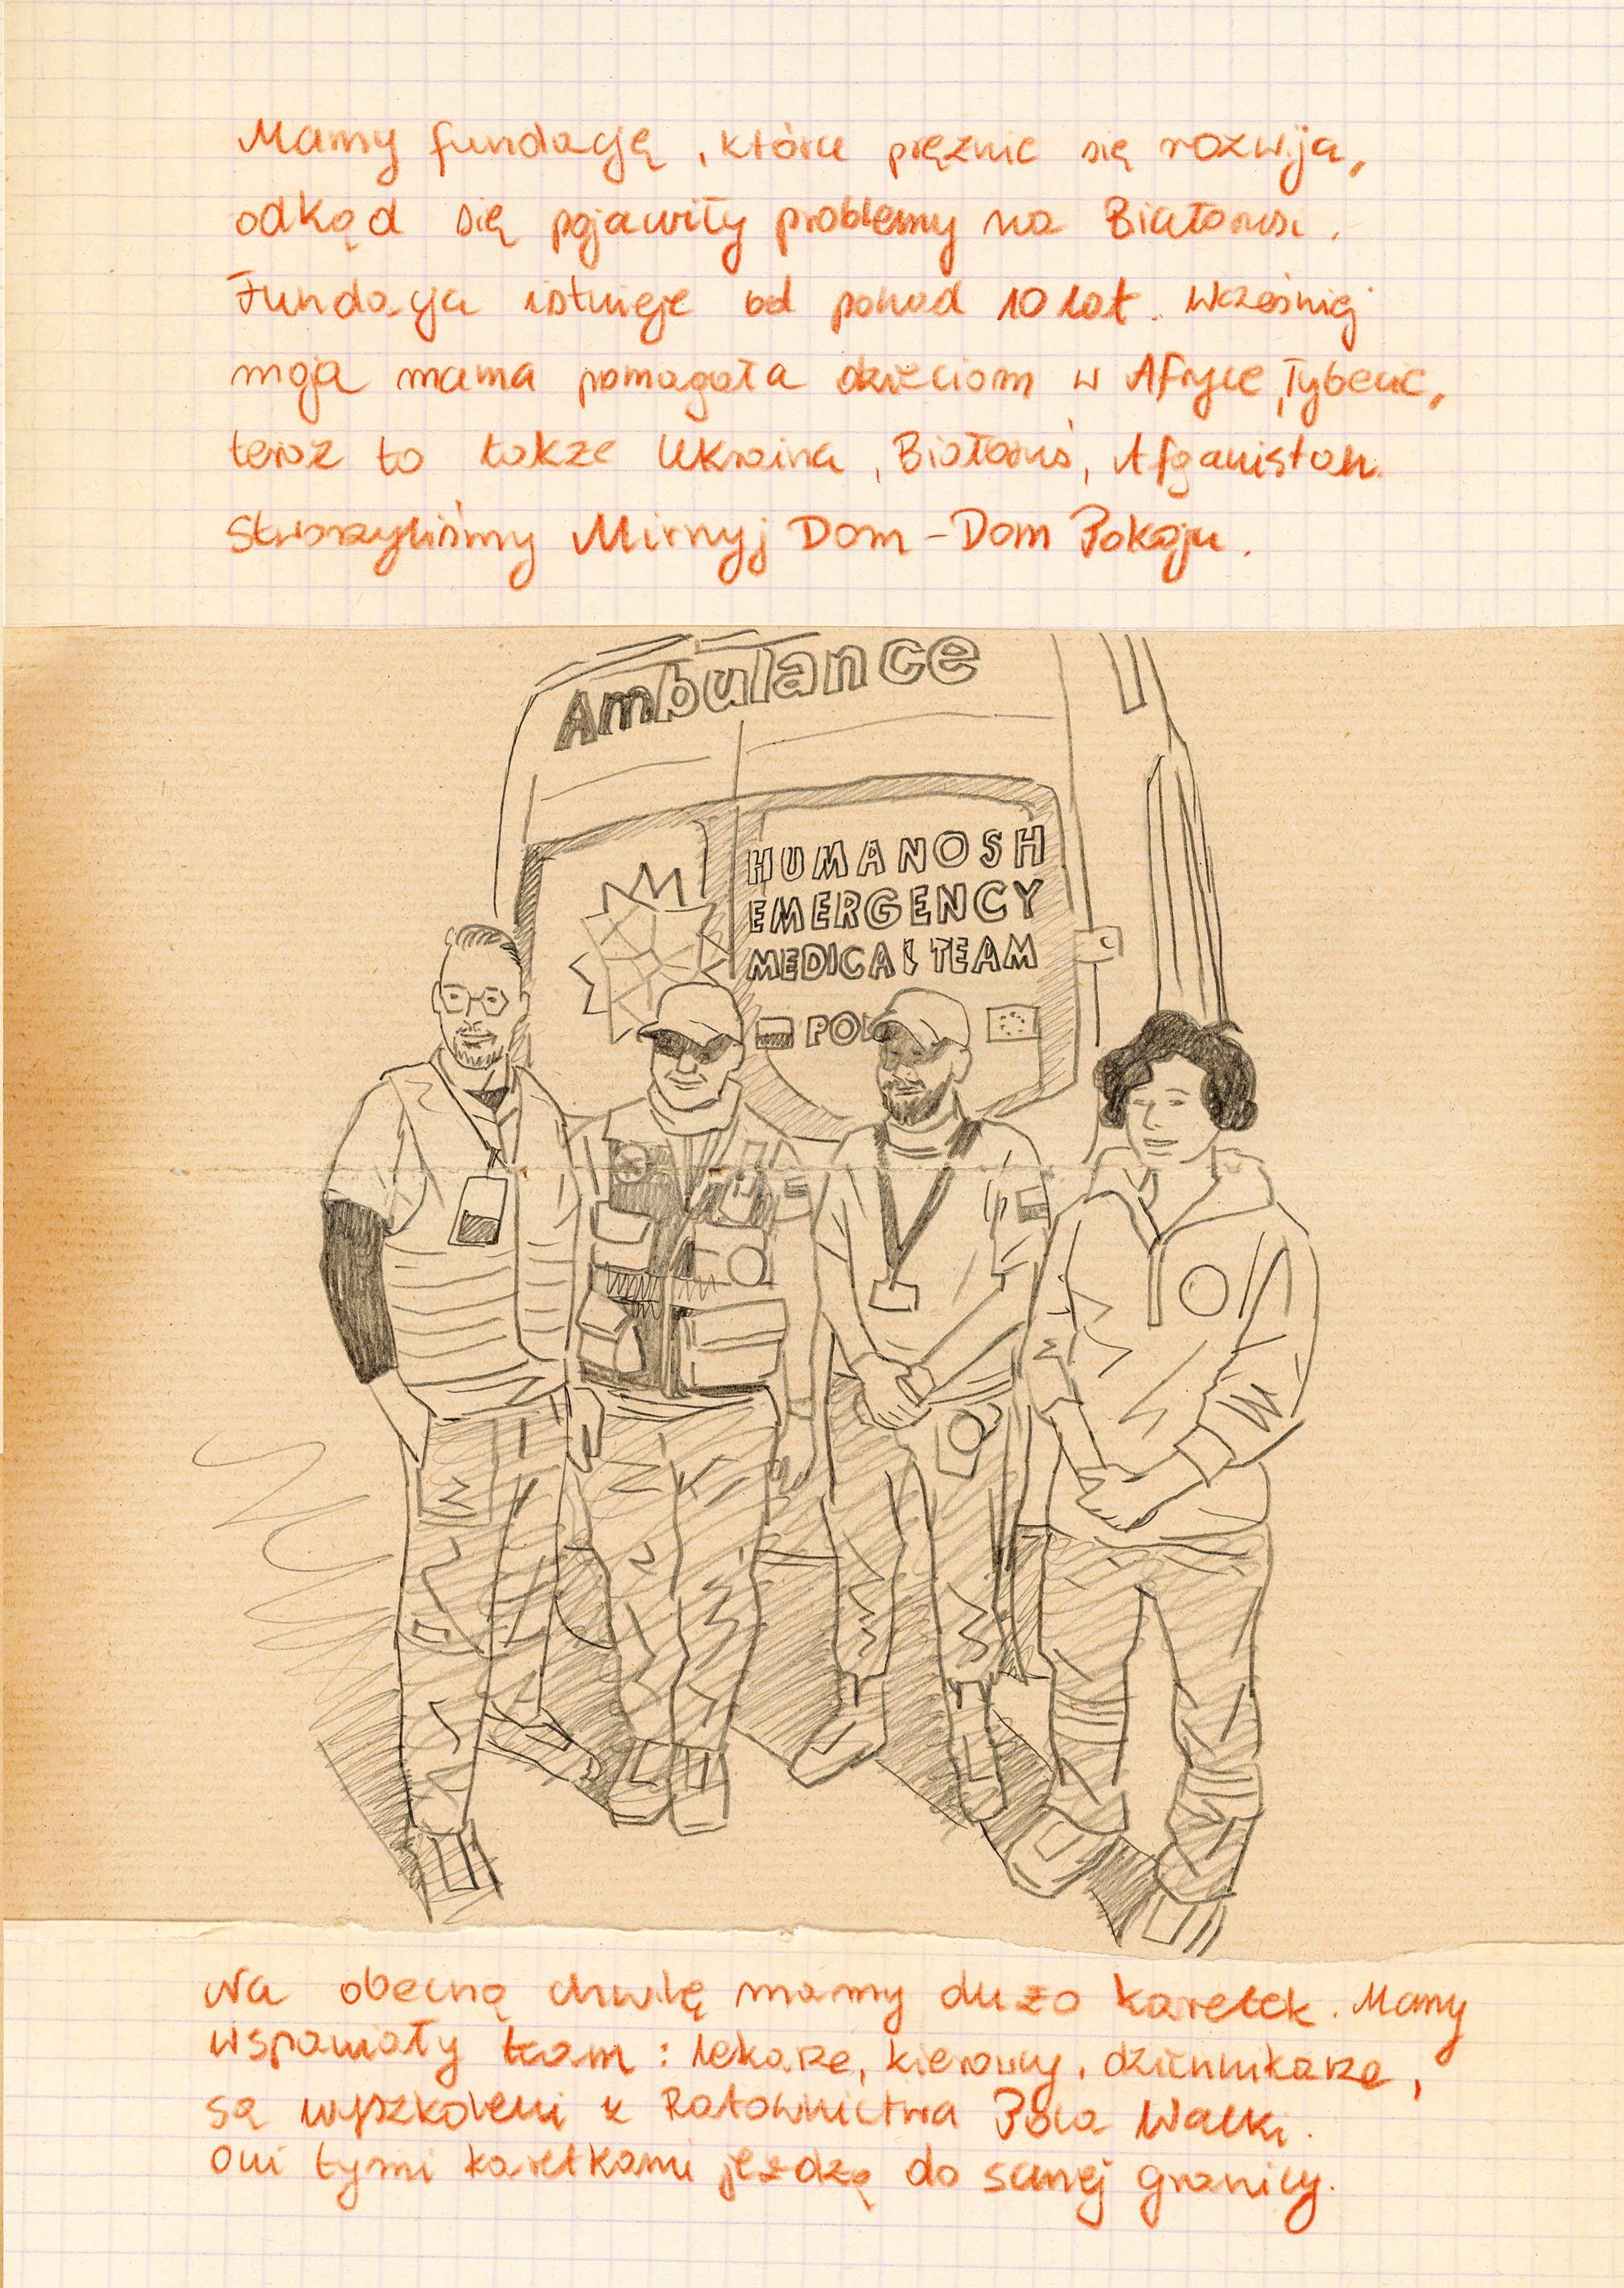 Mamy fundację, która prężnie się rozwija,
odkąd się pojawiły problemy na Białorusi.
Fundacja istnieje od ponad 10 lat. Wcześniej
moja mama pomagała dzieciom w Afryce, Tybecie,
teraz to także Ukraina, Białoruś, Afganistan.
Stworzyliśmy Mirnyj Dom - Dom Pokoju.
Ambulance
HUMANOSH
EMERGENCY
MEDICAL TEAM
PO
Na obecną chwilę mamy dużo karetek. Mamy
wspaniały team: lekarze, kierowcy, dziennikarze,
są wyszkoleni z Ratownictwa Pola Walki.
Oni tymi karetkami jeżdżą do samej granicy.